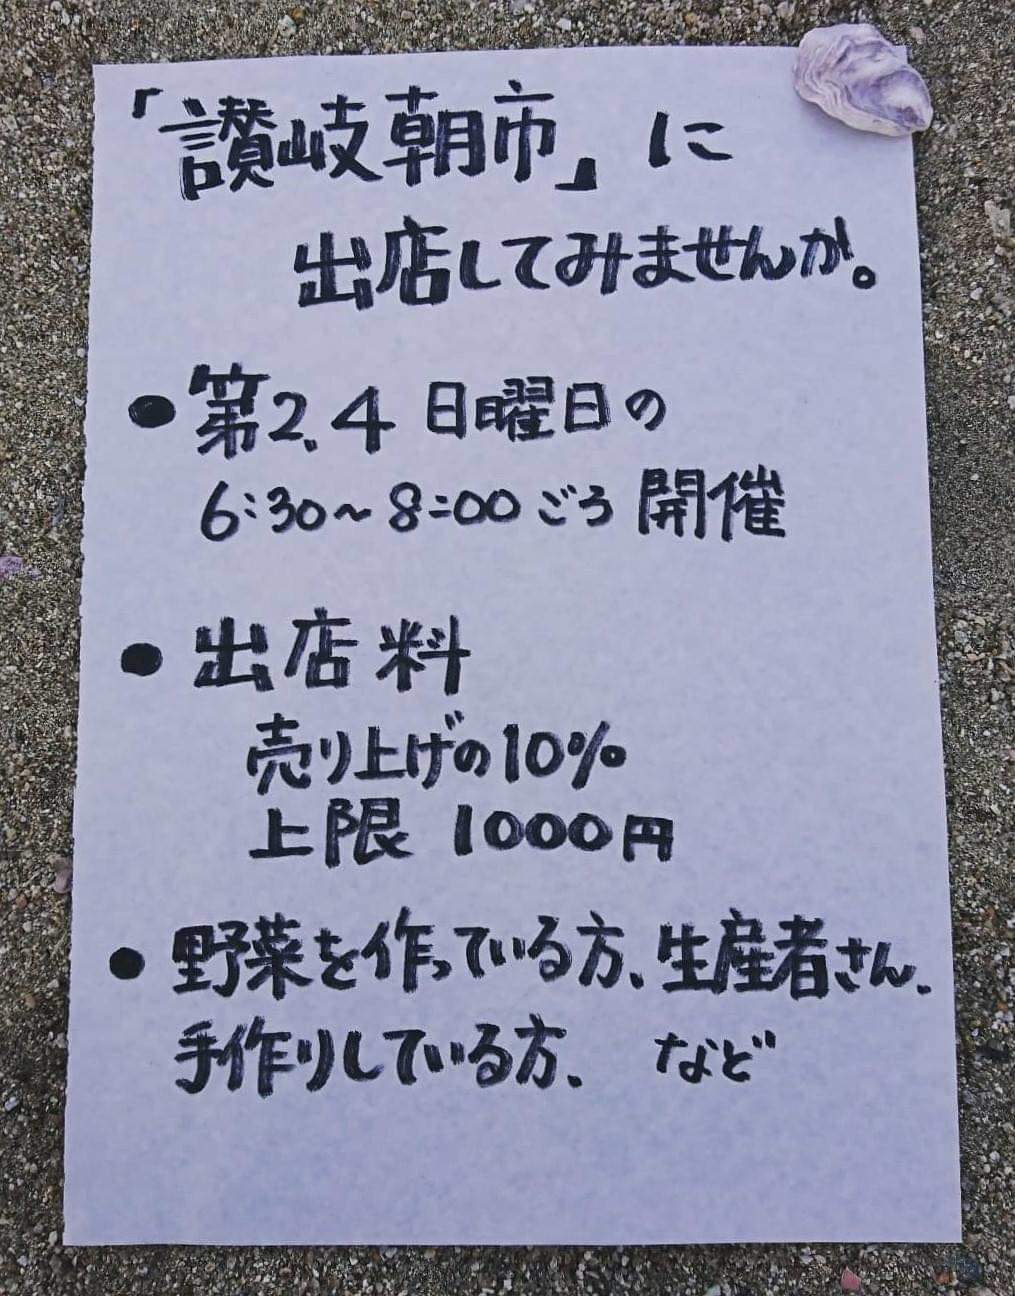 「讃岐朝市」に
出店してみませんか。
● 第2、4 日曜日の
6:30～8:00ごろ 開催
● 出店料
売り上げの10%
上限 1000円
● 野菜を作っている方、生産者さん、
手作りしている方、 など